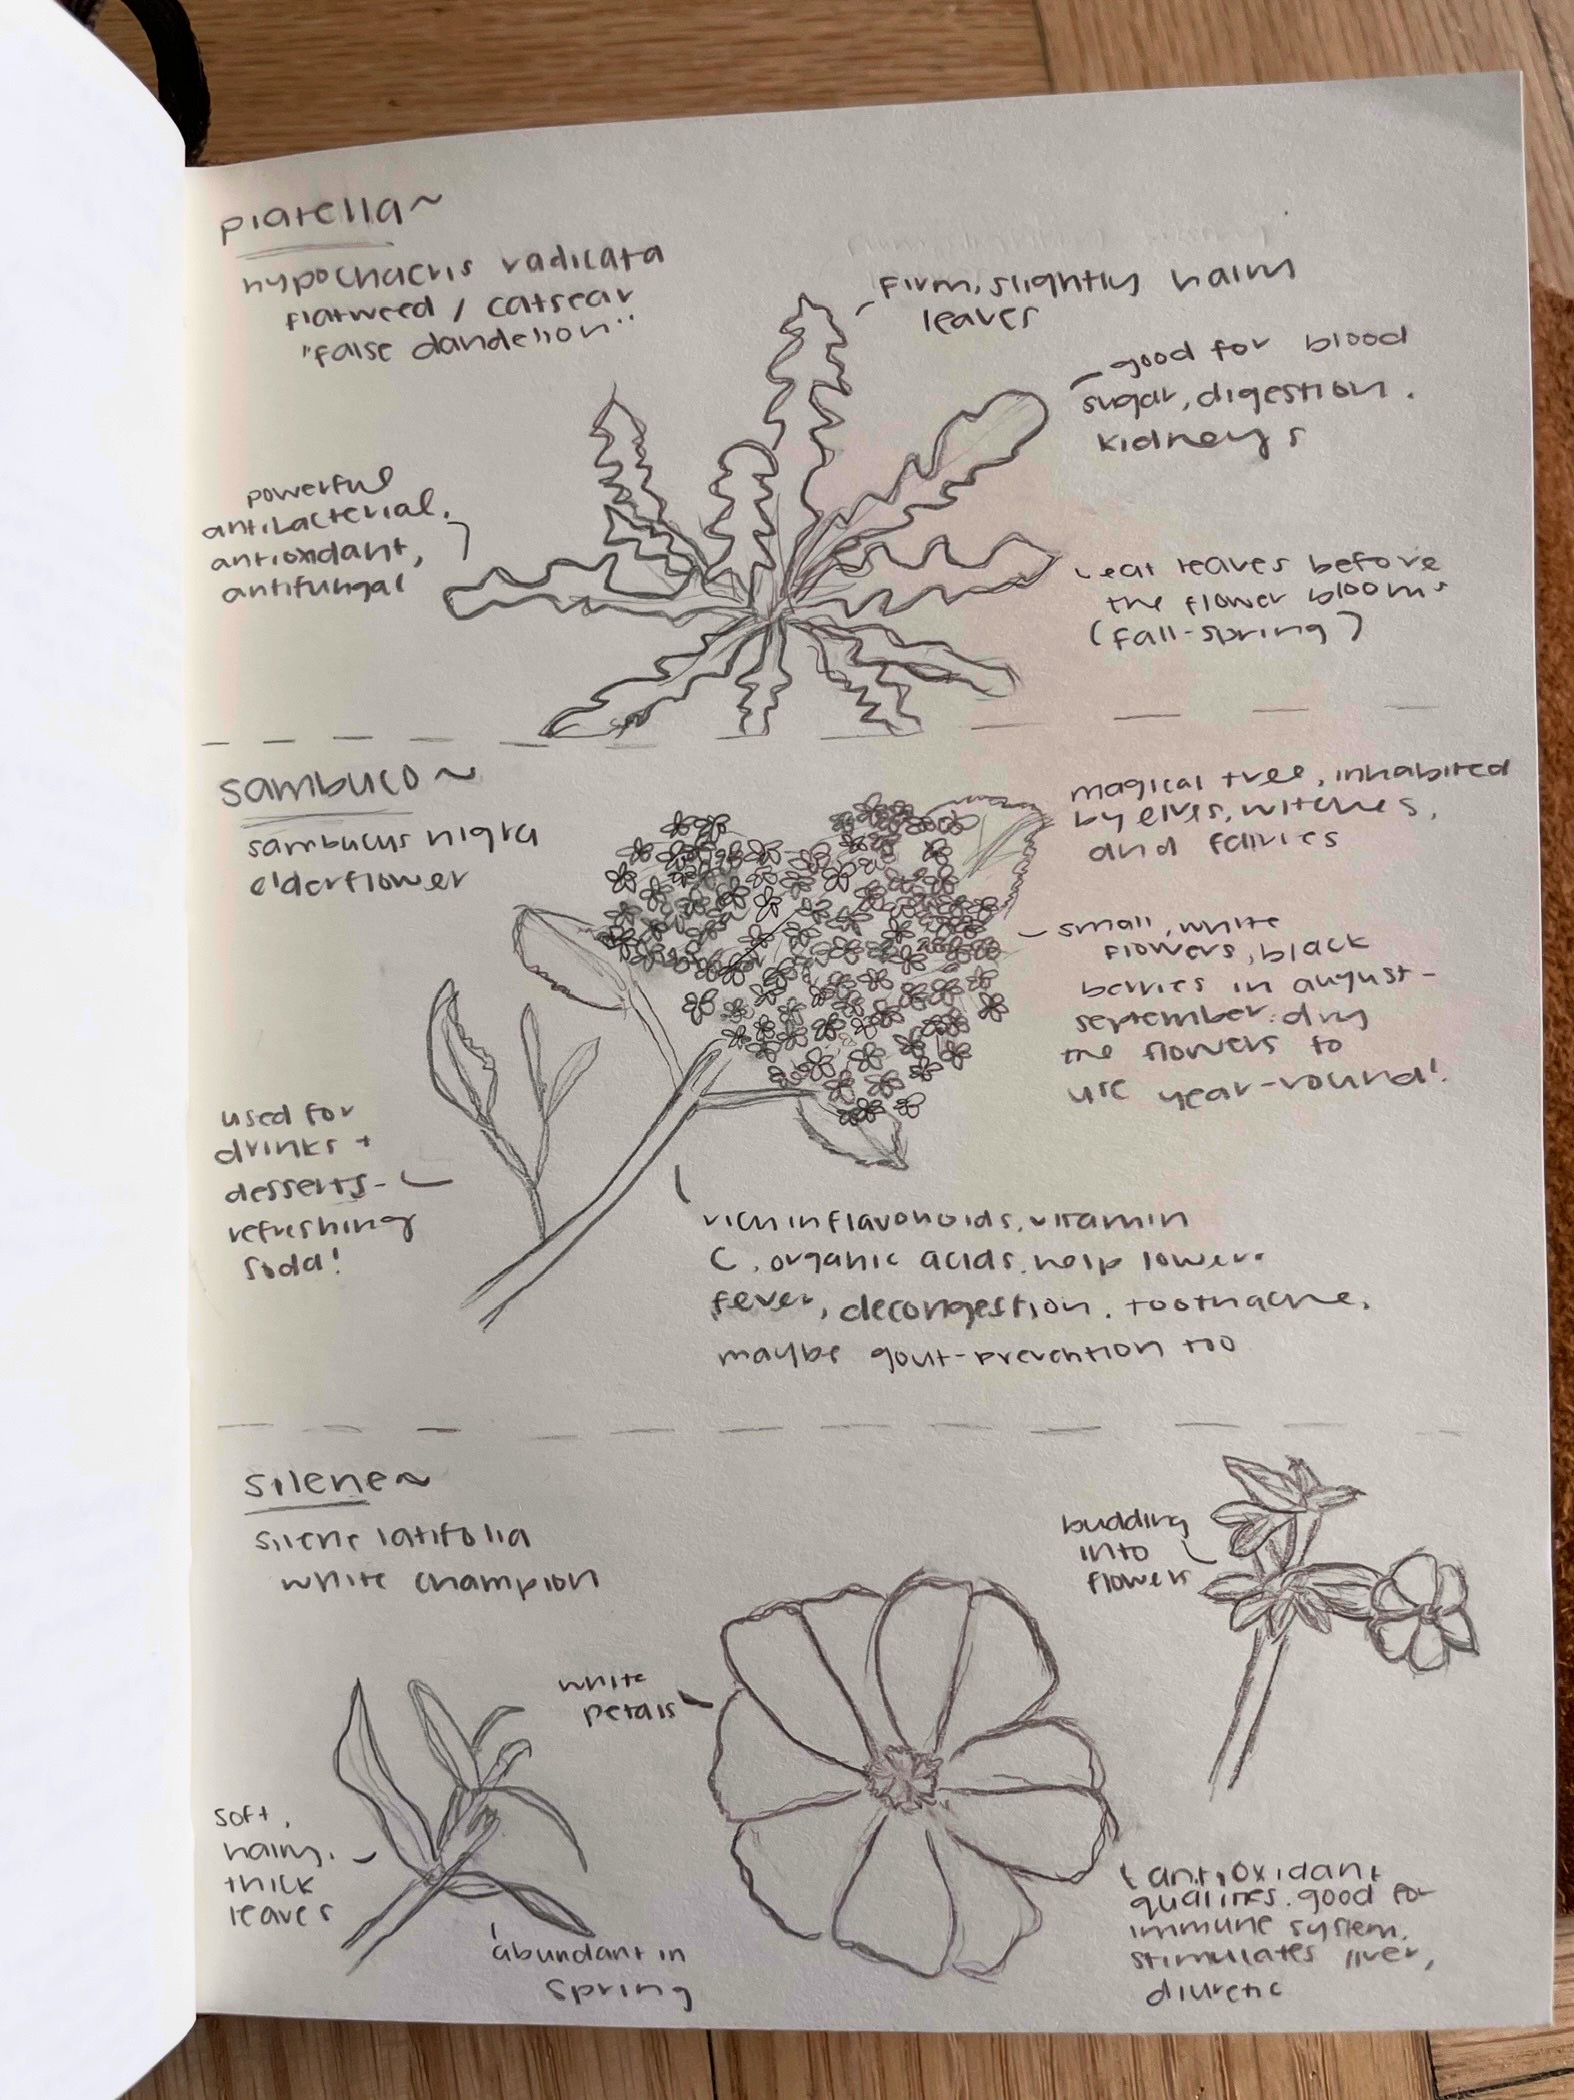 piatella~
hypochaeris radicata
flatweed / catsear
"false dandelion"
firm, slightly hairy
leaves
good for blood
sugar, digestion.
kidneys
powerful
antibacterial,
antioxidant,
antifungal
eat leaves before
the flower blooms
(fall-spring)
sambuco~
sambucus nigra
elderflower
magical tree, inhabited
by elves, witches,
and fairies
small, white
flowers, black
berries in august-
september. dry
the flowers to
use year-round!
used for
drinks +
desserts-
refreshing
soda!
rich in flavonoids, vitamin
C, organic acids. help lower
fever, decongestion, toothache,
maybe gout-prevention too
silene~
silene latifolia
white champion
budding
into
flowers
white
petals
soft,
hairy,
thick
leaves
abundant in
spring
antioxidant
qualities. good for
immune system,
stimulates liver,
diuretic